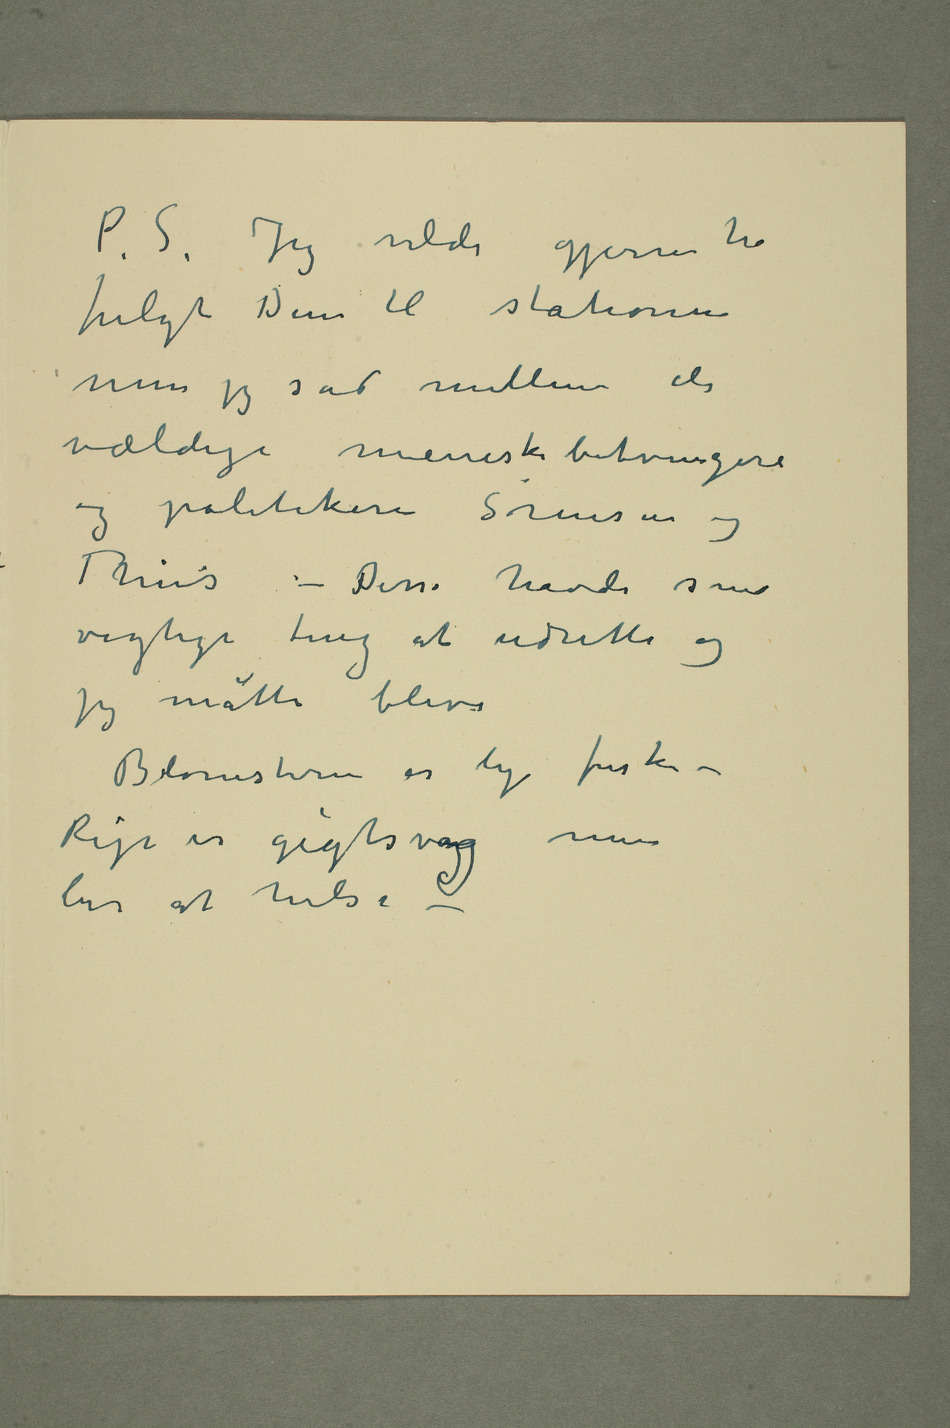 P. S. Jeg vilde gjerne ha
fulgt Dem til stationen
men jeg sad mellem de
vældige menneskebetvingere
og politikere Sørensen og
Thiis – Disse havde sine
vigtige ting at udrette og
jeg måtte blive
Blomsterne er lige friske –
Rige er gigtsvag men
ber at hilse –